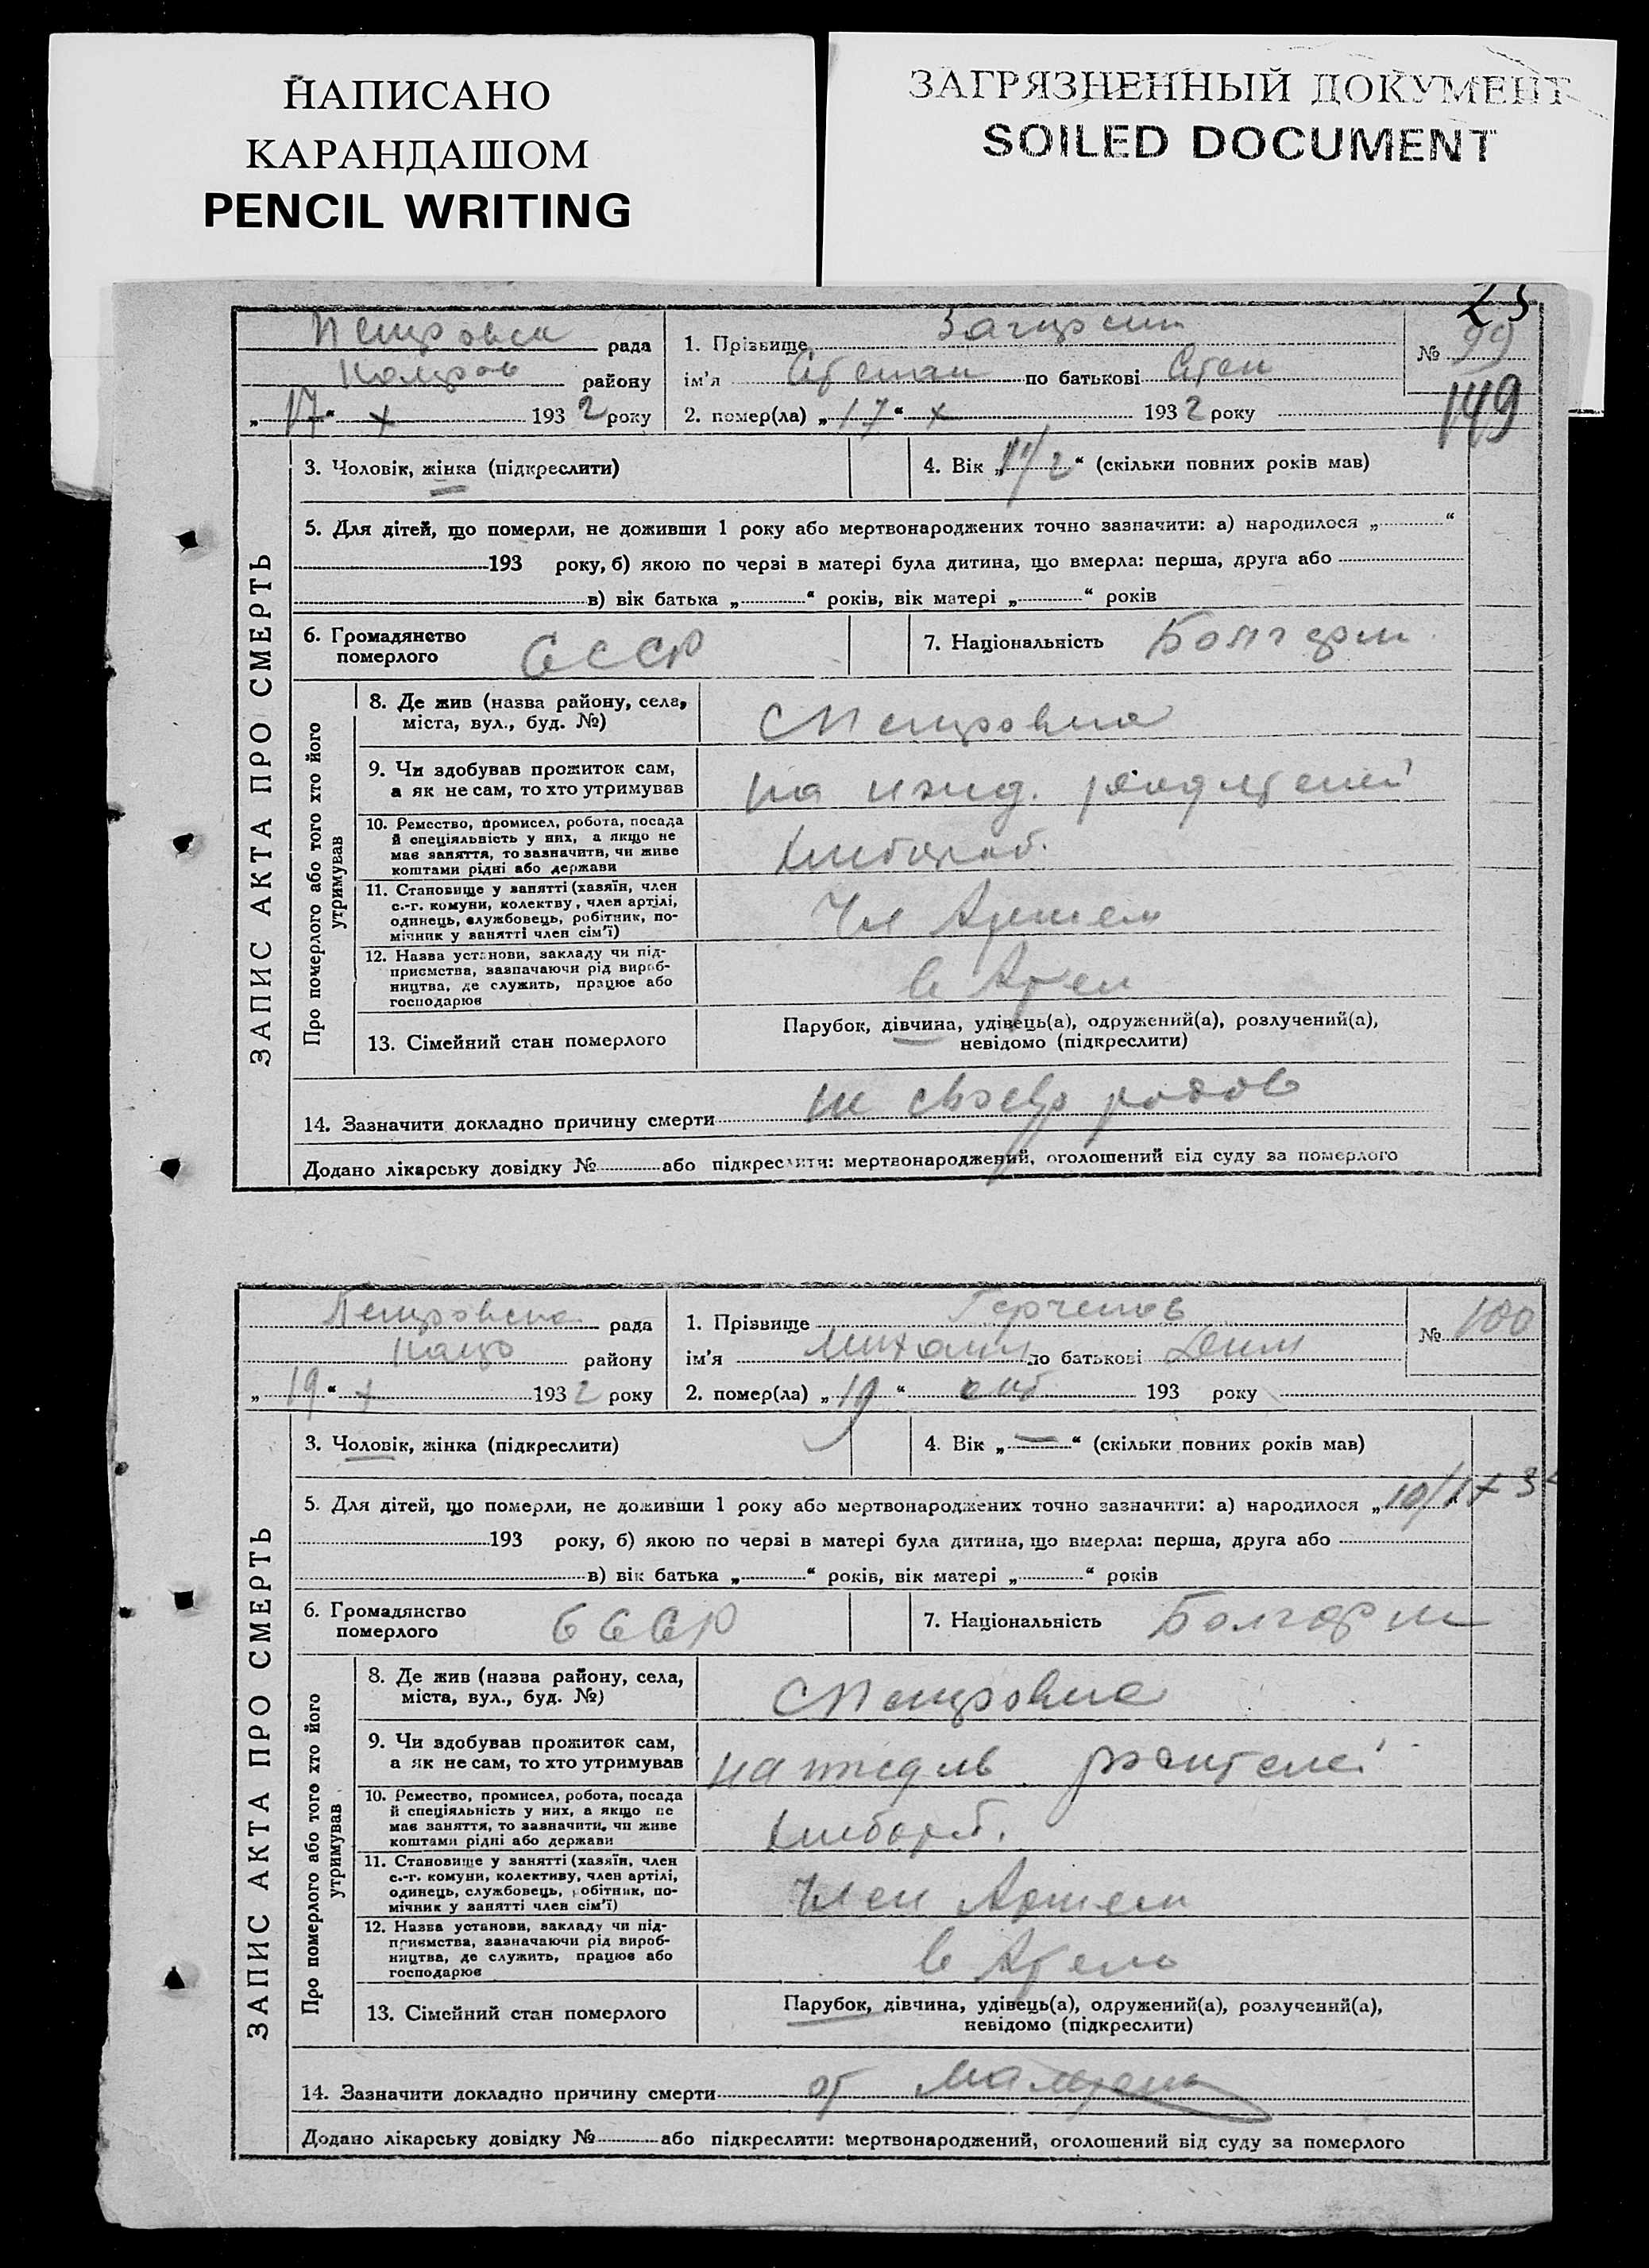 НАПИСАНО
КАРАНДАШОМ
PENCIL WRITING
ЗАГРЯЗНЕННЫЙ ДОКУМЕНТ
SOILED DOCUMENT
рада
району
„17“ X 1932 року
1. Прізвище
ім'я Степан по батькові Степ
2. помер(ла) „17“ X 1932 року
№ 99
149
ЗАПИС АКТА ПРО СМЕРТЬ
3. Чоловік, жінка (підкреслити)
4. Вік „ “ (скільки повних років мав)
5. Для дітей, що померли, не доживши 1 року або мертвонароджених точно зазначити: а) народилося „ “
193 року, б) якою по черзі в матері була дитина, що вмерла: перша, друга або
в) вік батька „ “ років, вік матері „ “ років
6. Громадянство
померлого
СССР
7. Національність
Про померлого або того хто його
утримував
8. Де жив (назва району, села,
міста, вул., буд. №)
9. Чи здобував прожиток сам,
а як не сам, то хто утримував
на ижд. родителей
10. Ремество, промисел, робота, посада
й спеціяльність у них, а якщо не
має заняття, то зазначити, чи живе
коштами рідні або держави
11. Становище у занятті (хазяїн, член
с.-г. комуни, колективу, член артілі,
одинець, службовець, робітник, по-
мічник у занятті член сім'ї)
12. Назва установи, закладу чи під-
приємства, зазначаючи рід вироб-
ництва, де служить, працює або
господарює
13. Сімейний стан померлого
Парубок, дівчина, удівець(а), одружений(а), розлучений(а),
невідомо (підкреслити)
14. Зазначити докладно причину смерти
Додано лікарську довідку № або підкреслити: мертвонароджений, оголошений від суду за померлого
рада
району
„19“ X 1932 року
1. Прізвище
ім'я Михаил по батькові Дим
2. помер(ла) „19“ окт 193 року
№ 100
ЗАПИС АКТА ПРО СМЕРТЬ
3. Чоловік, жінка (підкреслити)
4. Вік „—“ (скільки повних років мав)
5. Для дітей, що померли, не доживши 1 року або мертвонароджених точно зазначити: а) народилося „
193 року, б) якою по черзі в матері була дитина, що вмерла: перша, друга або
в) вік батька „ “ років, вік матері „ “ років
6. Громадянство
померлого
СССР
7. Національність
Про померлого або того хто його
утримував
8. Де жив (назва району, села,
міста, вул., буд. №)
9. Чи здобував прожиток сам,
а як не сам, то хто утримував
10. Ремество, промисел, робота, посада
й спеціяльність у них, а якщо не
має заняття, то зазначити, чи живе
коштами рідні або держави
11. Становище у занятті (хазяїн, член
с.-г. комуни, колективу, член артілі,
одинець, службовець, робітник, по-
мічник у занятті член сім'ї)
Член
12. Назва установи, закладу чи під-
приємства, зазначаючи рід вироб-
ництва, де служить, працює або
господарює
13. Сімейний стан померлого
Парубок, дівчина, удівець(а), одружений(а), розлучений(а),
невідомо (підкреслити)
14. Зазначити докладно причину смерти от
Додано лікарську довідку № або підкреслити: мертвонароджений, оголошений від суду за померлого